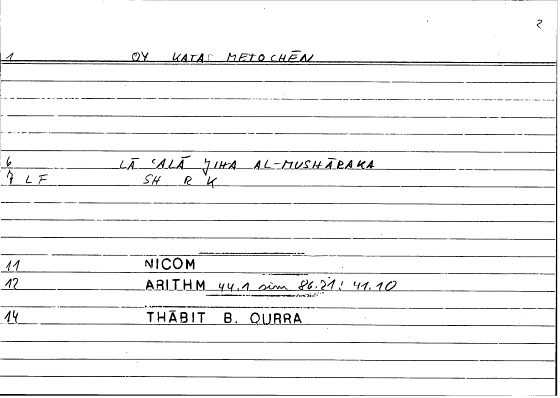 2
1 OY KATA METOCHĒN
6 LĀ ʿALĀ JIHA AL-MUSHĀRAKA
7 LF SH R K
11 NICOM
12 ARITHM 44.1 sim 86.21; 41.10
14 THĀBIT B. QURRA